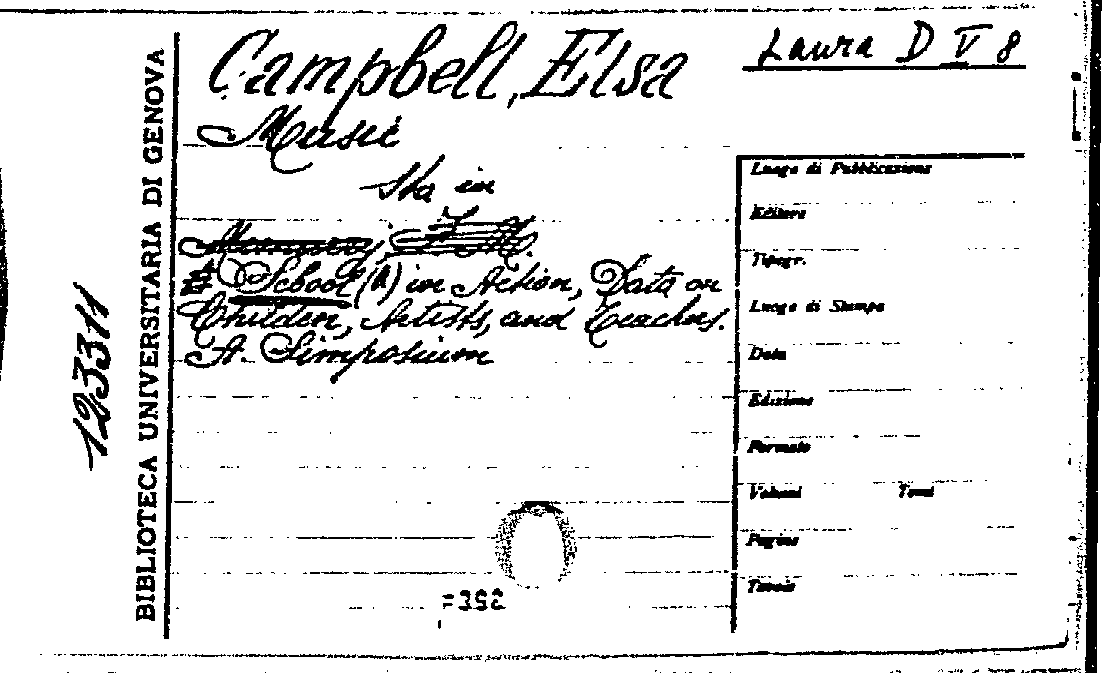 Campbell, Elsa
Laura D V 8
Music
Sta in
School (A) in Action, Data on
Children, Artists, and Teachers.
A. Simposium
Luogo di Pubblicazione
Editore
Tipogr.
Luogo di Stampa
Data
Edizione
Formato
Volumi Tomi
Pagine
Tavole
BIBLIOTECA UNIVERSITARIA DI GENOVA
123311